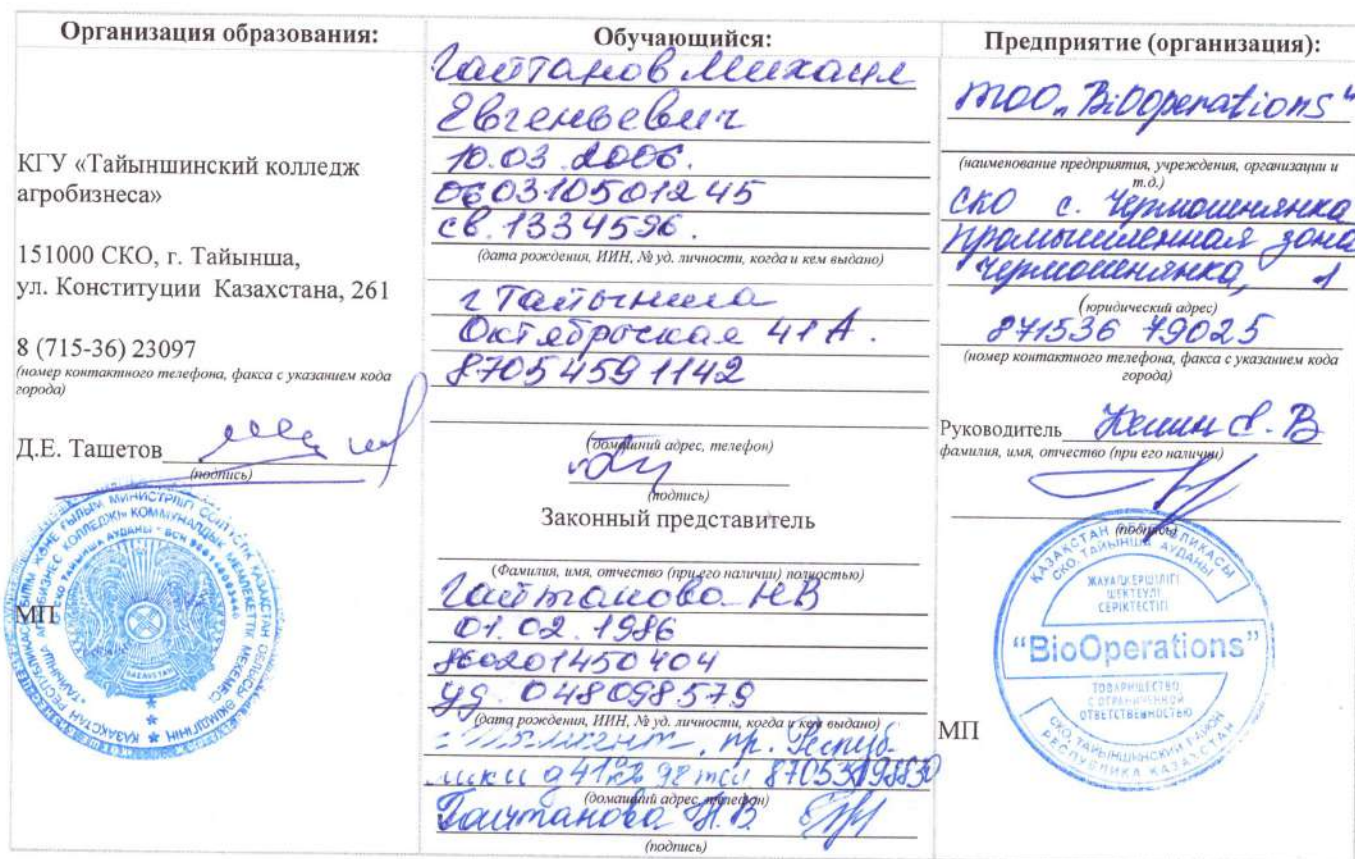 Организация образования:
КГУ «Тайыншинский колледж
агробизнеса»
151000 СКО, г. Тайынша,
ул. Конституции Казахстана, 261
8 (715-36) 23097
(номер контактного телефона, факса с указанием кода
города)
Д.Е. Ташетов
(подпись)
МП
Обучающийся:
Гайтанов Михаил
Евгеньевич
10.03.2006.
060310501245
св. 1334596.
(дата рождения, ИИН, № уд. личности, когда и кем выдано)
г Тайынша
Октябрьская 41 А.
8705 459 1142
(домашний адрес, телефон)
(подпись)
Законный представитель
(Фамилия, имя, отчество (при его наличии) полностью)
Гайтанова НВ
01.02.1986
860201450404
уд. 048098579
(дата рождения, ИИН, № уд. личности, когда и кем выдано)
пр. Респуб-
лики
(домашний адрес, телефон)
Гайтанова Н.В.
(подпись)
Предприятие (организация):
ТОО „BiOOperations"
(наименование предприятия, учреждения, организации и
т.д.)
СКО с. Чермошнянка
промышленная зона
Чермошнянка, 1
(юридический адрес)
871536 79025
(номер контактного телефона, факса с указанием кода
города)
Руководитель
фамилия, имя, отчество (при его наличии)
(подпись)
ҚАЗАҚСТАН РЕСПУБЛИКАСЫ
СКО, ТАЙЫНША АУДАНЫ
ЖАУАПКЕРШІЛІГІ
ШЕКТЕУЛІ
СЕРІКТЕСТІГІ
"BioOperations"
ТОВАРИЩЕСТВО
С ОГРАНИЧЕННОЙ
ОТВЕТСТВЕННОСТЬЮ
СКО, ТАЙЫНШИНСКИЙ РАЙОН
РЕСПУБЛИКА КАЗАХСТАН
МП